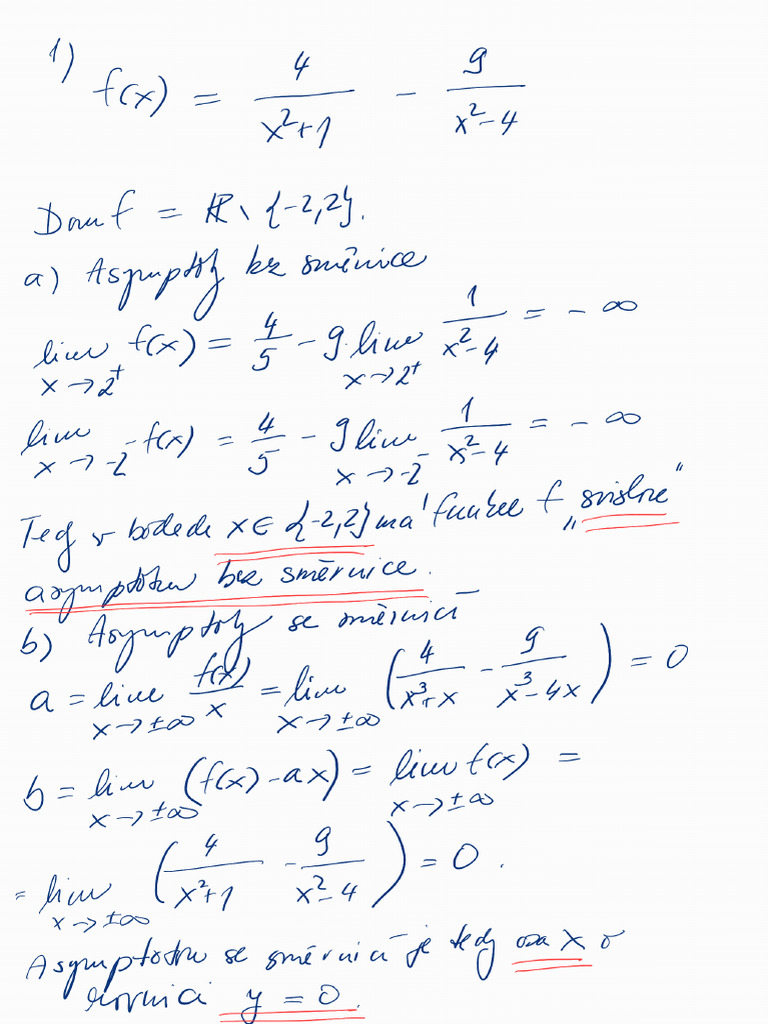 1) f(x) = 4/(x²+1) - 9/(x²-4)
Dom f = ℝ \ {-2,2}.
a) Asymptoty bez směrnice
lim x→2⁺ f(x) = 4/5 - 9·lim x→2⁺ 1/(x²-4) = -∞
lim x→-2⁻ f(x) = 4/5 - 9 lim x→-2⁻ 1/(x²-4) = -∞
Tedy v bodech x∈{-2,2} má funkce f „svislou"
asymptotu bez směrnice.
b) Asymptoty se směrnicí
a = lim x→±∞ f(x)/x = lim x→±∞ (4/(x³+x) - 9/(x³-4x)) = 0
b = lim x→±∞ (f(x)-ax) = lim x→±∞ f(x) =
= lim x→±∞ (4/(x²+1) - 9/(x²-4)) = 0.
Asymptotou se směrnicí je tedy osa x o
rovnici y = 0.